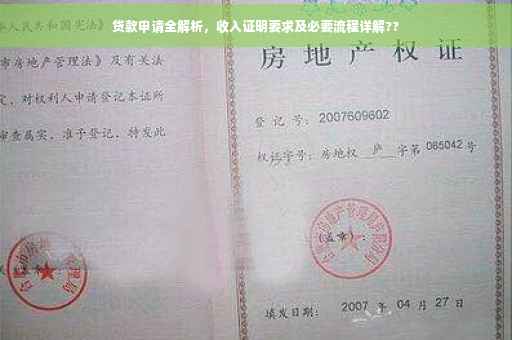 贷款申请全解析，收入证明要求及必要流程详解??
人民共和国宪法》
市房地产管理法》及有关法
定，对权利人申请登记本证所
审查属实，准予登记，特发此
房地产权证
登记号：2007609602
权证字号：房地权 庐 字第 065042 号
(盖章)：
填发日期：2007 年 04 月 27 日